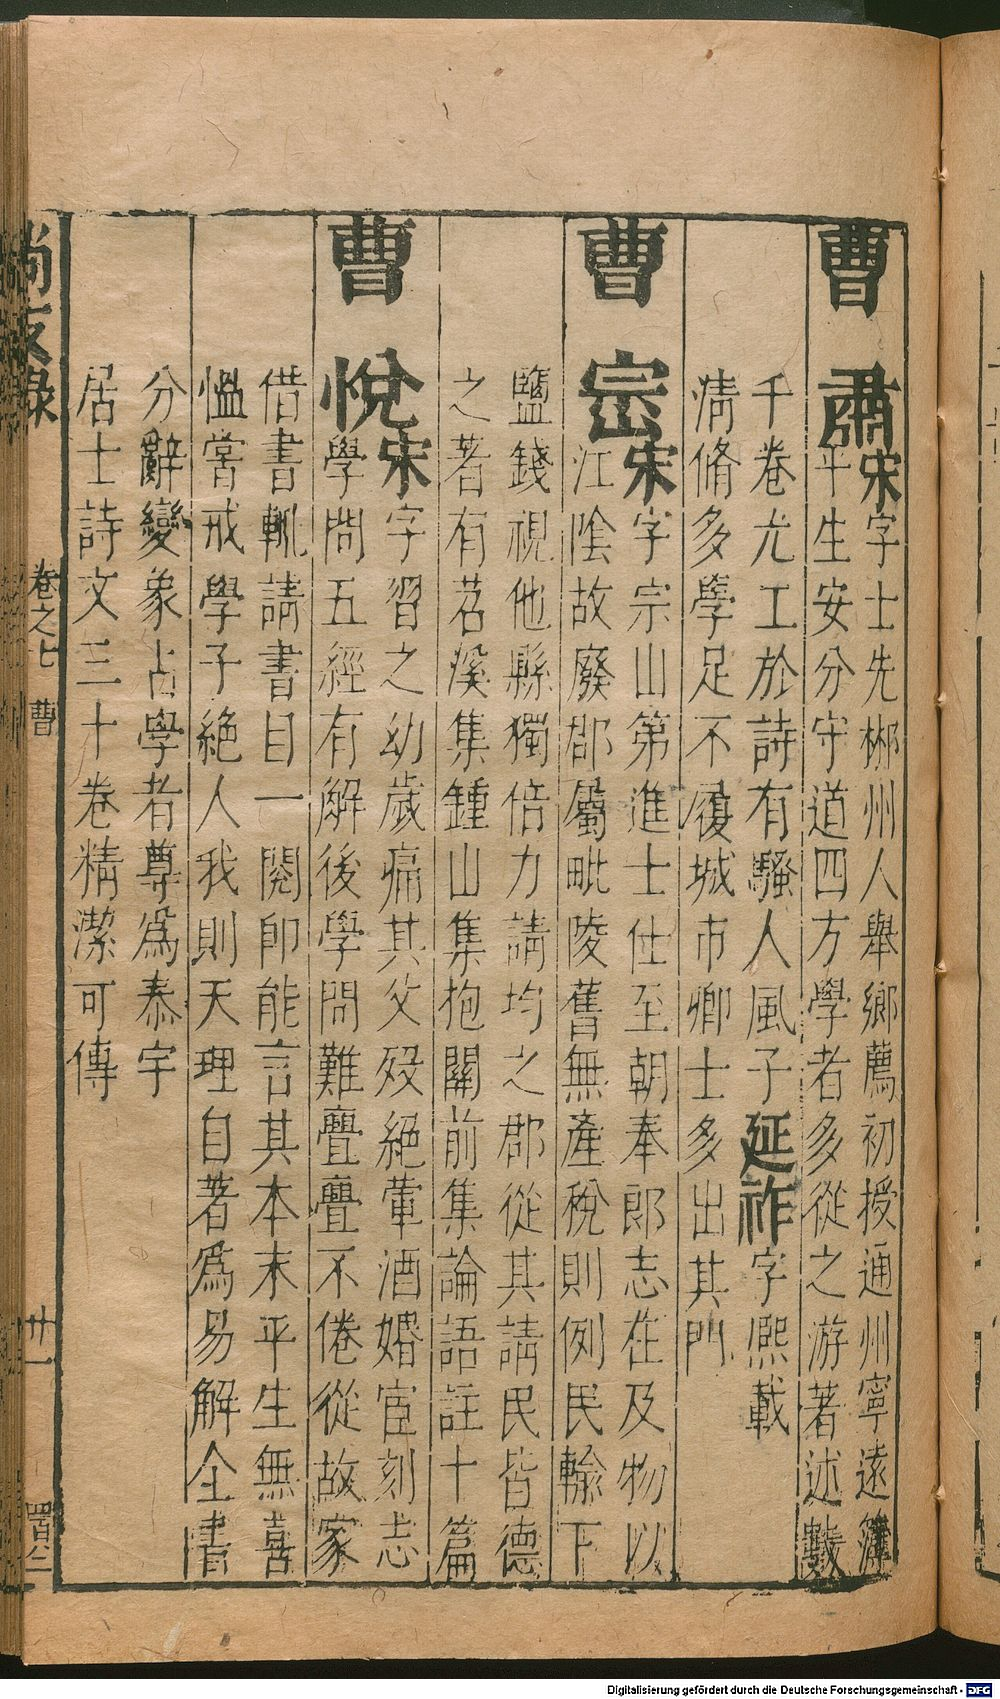 曹肅宋字士先郴州人舉鄉薦初授通州寧遠簿
平生安分守道四方學者多從之游著述數
千卷尤工於詩有騷人風子延祚字熙載
清脩多學足不履城市卿士多出其門
曹宗宋字宗山第進士仕至朝奉郎志在及物以
江陰故廢郡屬毗陵舊無產稅則例民輸下
鹽錢視他縣獨倍力請均之郡從其請民皆德
之著有茗溪集鍾山集抱關前集論語註十篇
曹悅宋字習之幼歲痛其父歿絕葷酒婚宦刻志
學問五經有解後學問難亹亹不倦從故家
借書輒請書目一閱即能言其本末平生無喜
慍嘗戒學子絕人我則天理自著為易解全書
分辭變象占學者尊為泰宇
居士詩文三十卷精潔可傳
尚友錄 卷之七 曹 廿一
Digitalisierung gefördert durch die Deutsche Forschungsgemeinschaft - DFG